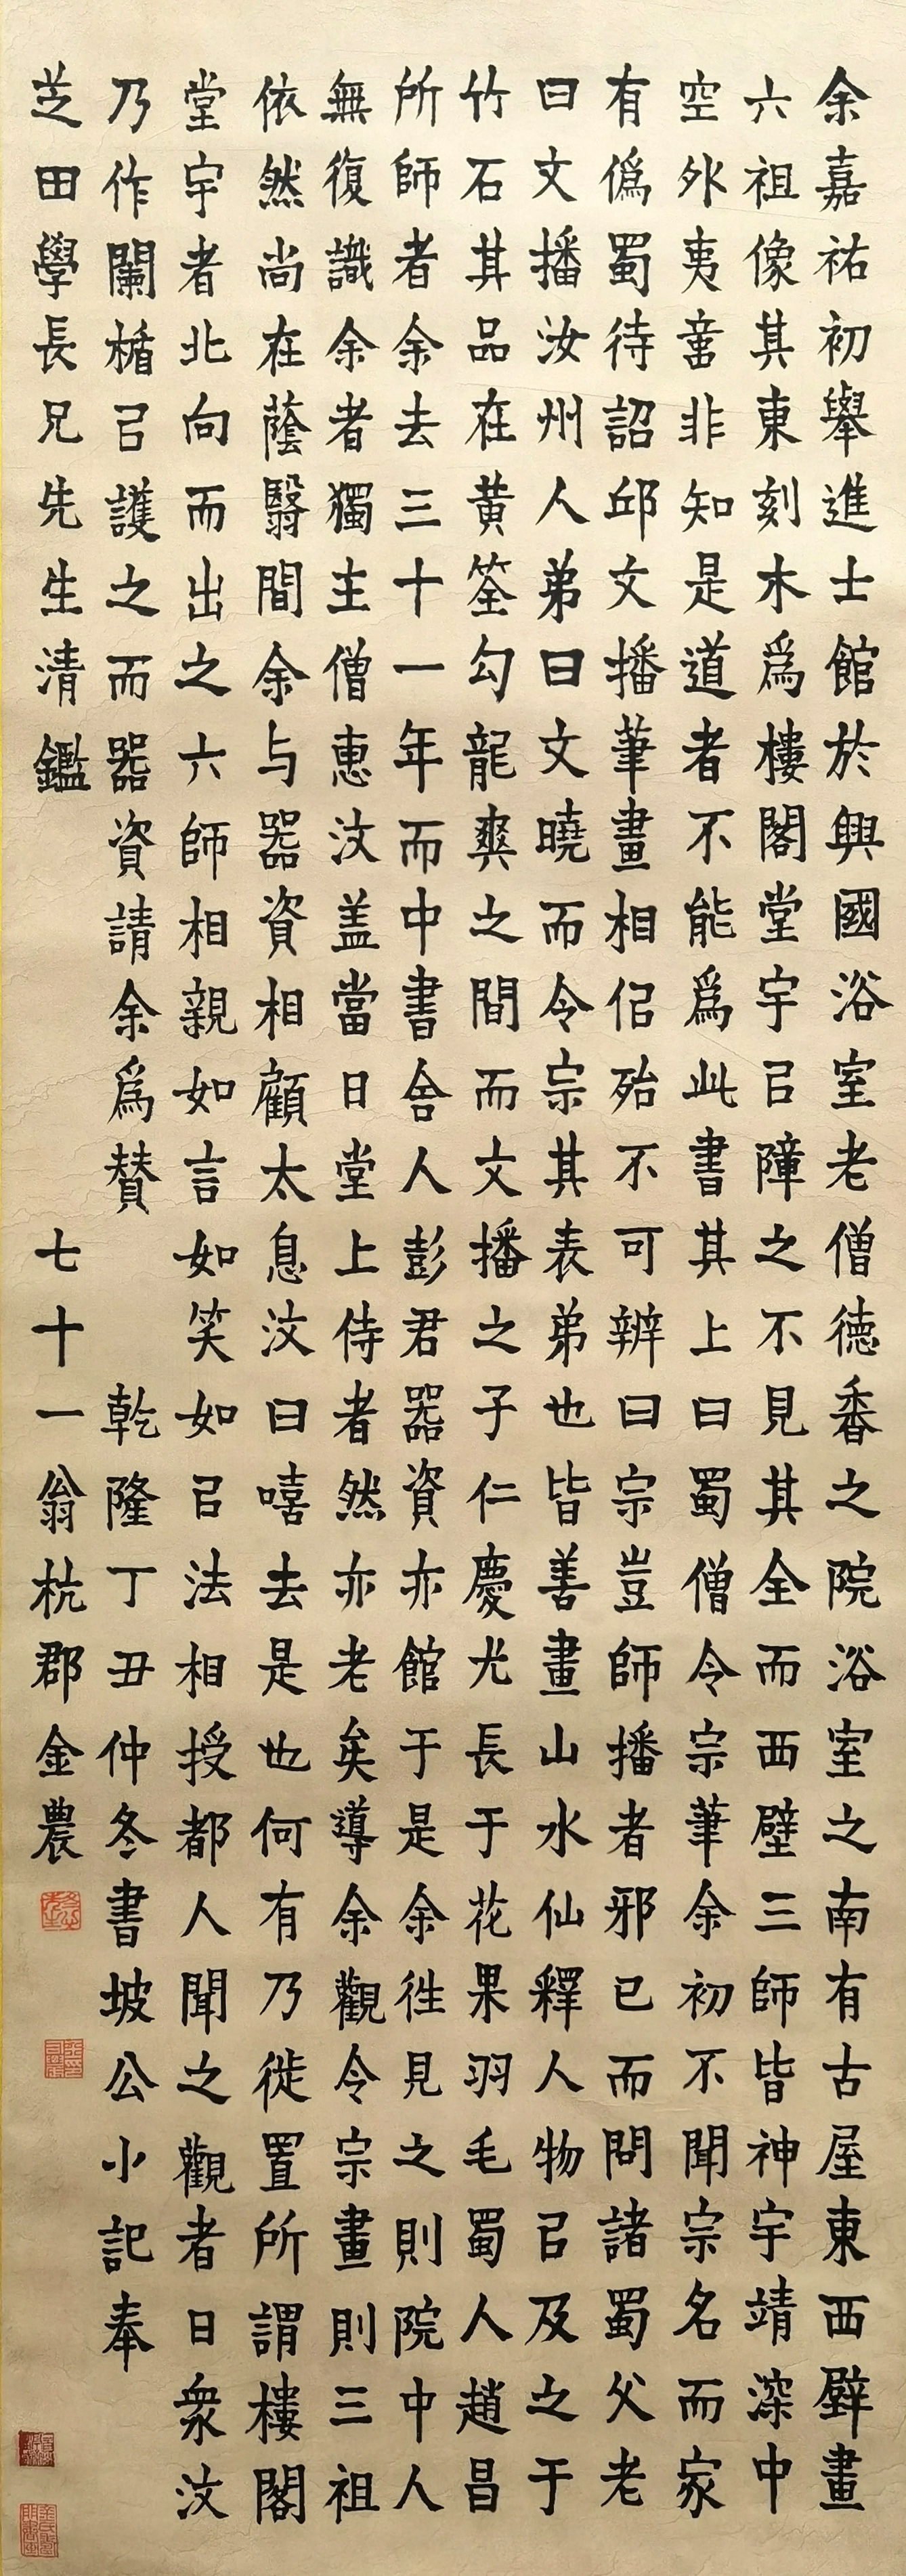 余嘉祐初舉進士館於興國浴室老僧德香之院浴室之南有古屋東西壁畫
六祖像其東刻木爲樓閣堂宇㠯障之不見其全而西壁三師皆神宇靖深中
空外夷啚非知是道者不能爲此書其上曰蜀僧令宗筆余初不聞宗名而家
有僞蜀待詔邱文播筆畫相侣殆不可辨曰宗豈師播者邪已而問諸蜀父老
曰文播汝州人弟曰文曉而令宗其表弟也皆善畫山水仙釋人物㠯及之于
竹石其品在黄筌勾龍爽之間而文播之子仁慶尤長于花果羽毛蜀人趙昌
所師者余去三十一年而中書舍人彭君器資亦館于是余徃見之則院中人
無復識余者獨主僧惠汶盖當日堂上侍者然亦老矣導余觀令宗畫則三祖
依然尚在蔭翳間余与器資相顧太息汶曰嘻去是也何有乃徙置所謂樓閣
堂宇者北向而出之六師相親如言如笑如㠯法相授都人聞之觀者日衆汶
乃作闌楯㠯護之而器資請余爲贊 乾隆丁丑仲冬書坡公小記奉
芝田學長兄先生清鑑 七十一翁杭郡金農